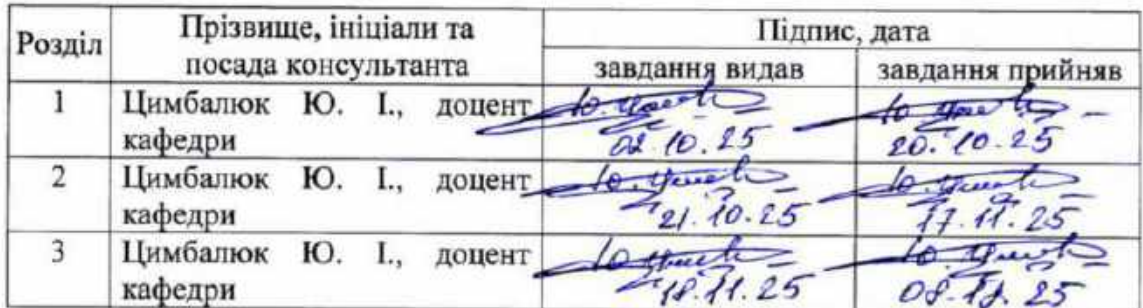 Розділ
Прізвище, ініціали та
посада консультанта
Підпис, дата
завдання видав
завдання прийняв
1
Цимбалюк Ю. І., доцент
кафедри
02.10.25
20.10.25
2
Цимбалюк Ю. І., доцент
кафедри
21.10.25
17.11.25
3
Цимбалюк Ю. І., доцент
кафедри
18.11.25